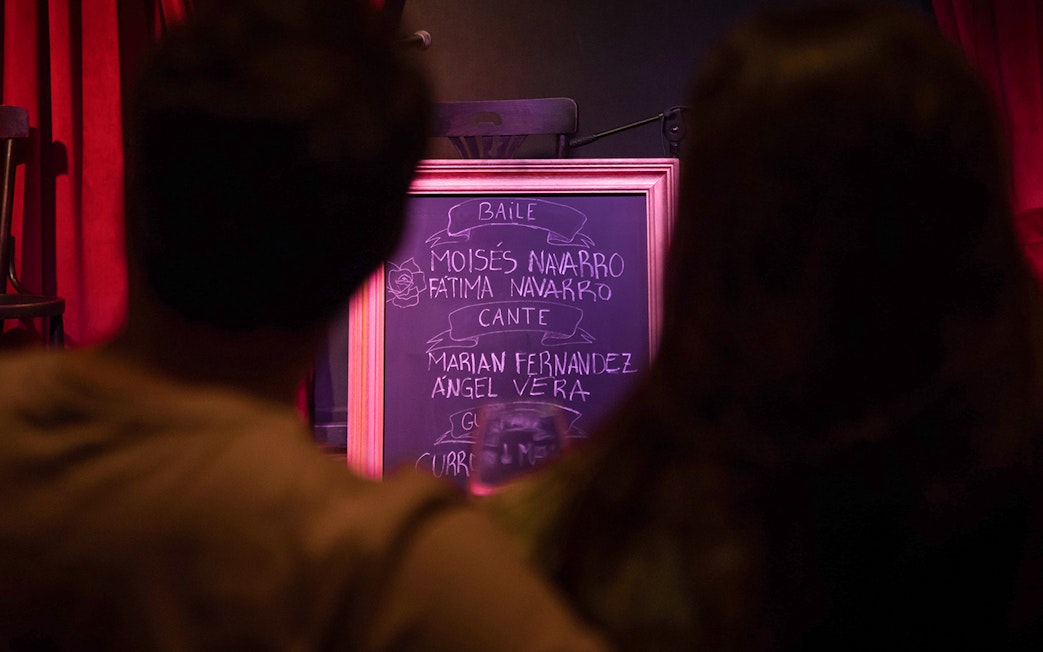 BAILE
MOISÉS NAVARRO
FÁTIMA NAVARRO
CANTE
MARIAN FERNANDEZ
ÁNGEL VERA